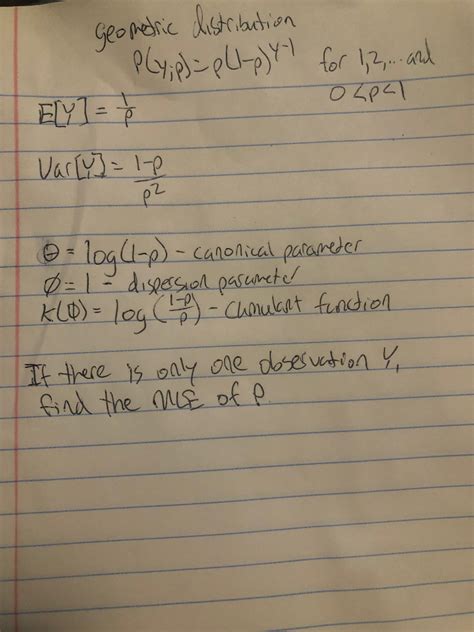 geometric distribution
P(y;p)=p(1-p)^y-1 for 1,2,... and
0<p<1
E[Y] = 1/p
Var[Y] = 1-p/p²
θ = log(1-p) - canonical parameter
Ø = 1 - dispersion parameter
K(Φ) = log(1-p/p) - cumulant function
If there is only one observation Y,
find the MLE of P.